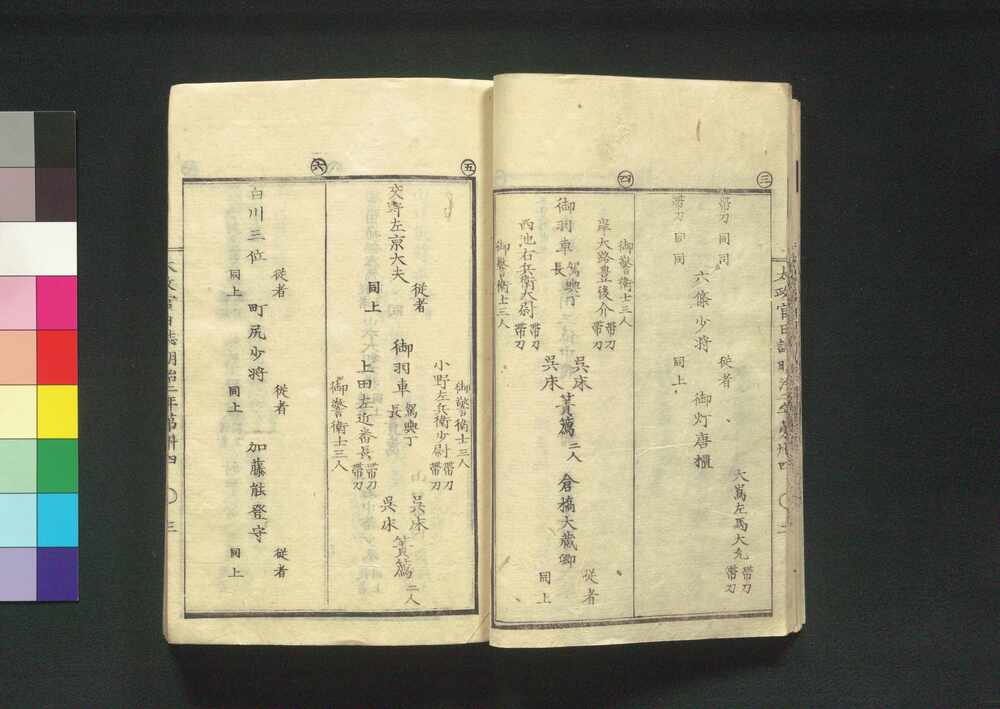 ㊂
帯刀 同 同
帯刀 同 同
六條少将
従者
同上
御灯唐櫃
大嶌左馬大允
帯刀
帯刀
㊃
御警衛士三人
岸大路豊後介
帯刀
帯刀
御羽車
駕輿丁
長
西池右兵衛大尉
帯刀
帯刀
御警衛士三人
呉床
呉床
箕篶
二人
倉橋大蔵卿
従者
同上
太政官日誌明治二年第卅四
㊄
交野左京大夫
従者
同上
小野左兵衛少尉
帯刀
帯刀
御警衛士三人
御羽車
駕輿丁
長
上田左近番長
帯刀
帯刀
御警衛士三人
呉床
呉床
箕篶
二人
㊅
白川三位
従者
同上
町尻少将
従者
同上
加藤能登守
従者
同上
太政官日誌明治二年第卅四
三